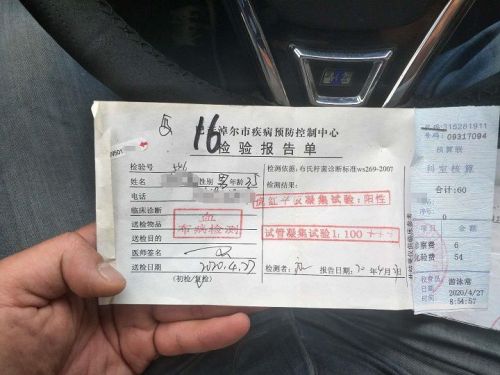 16
巴彦淖尔市疾病预防控制中心
检验报告单
检验号
检测依据:布氏杆菌诊断标准ws269-2007
姓名 性别 男 年龄
检测结果:
电话
虎红平板凝集试验:阳性
临床诊断
送检物品
血
布病检测
试管凝集试验1:100+++
送检目的
医师签名
送检日期 2020.4.27
检测者: 报告日期:20 年4月 日
(初检/复检)
09317094
核算联
科室核算
合计:60
察费 6
化验费 54
收费员 游泳常
日期 2020/4/27
8:54:57